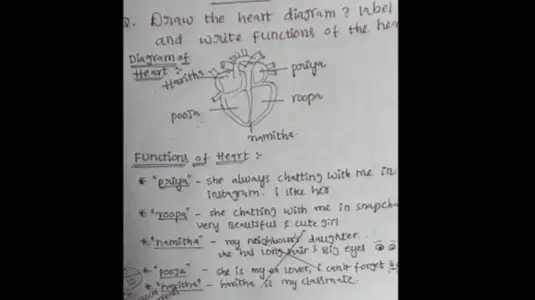 Q. Draw the heart diagram? label
and write functions of the hea
Diagram of
Heart :-
Haritha
priya
roopa
pooja
namitha
Functions of Heart :-
* "priya" - she always chatting with me in
instagram. i like her
* "roopa" - she chatting with me in snapcha
very beautiful & cute girl
* "namitha" - my neighbour's daughter..
she has long hair & Big eyes
* "pooja" - she is my ex lover, i can't forget
* "haritha" - haritha is my classmate.
10